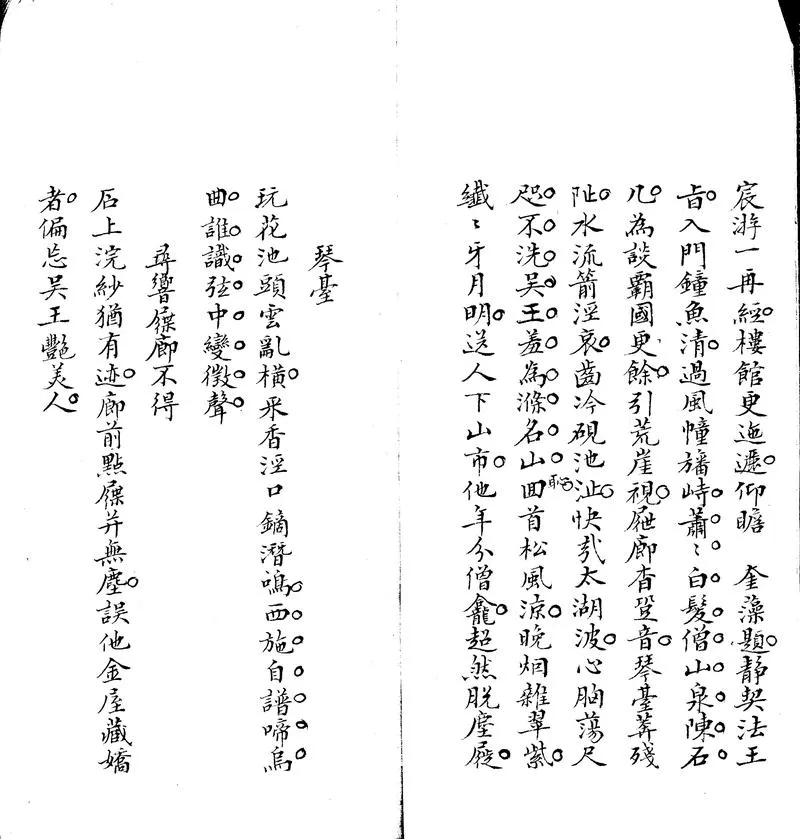 宸游一再經樓館更迤邐仰瞻　奎藻題靜契法王
旨入門鐘魚清過風幢旛峙蕭〻白髮僧山泉陳石
几為談霸國更餘引荒崖視屧廊杳跫音琴臺葬殘
阯水流箭涇哀齒冷硯池沚快哉太湖波心胸蕩尺
咫不洗吳王羞為滌名山恥回首松風涼晚烟雜翠紫
纖〻牙月明送人下山市他年分僧龕超然脫塵屣
琴臺
玩花池頭雲亂橫采香涇口鏑潛鳴西施自譜啼烏
曲誰識弦中變徵聲
尋響屧廊不得
石上浣紗猶有迹廊前點屧并無塵誤他金屋藏嬌
者偏忘吳王艷美人